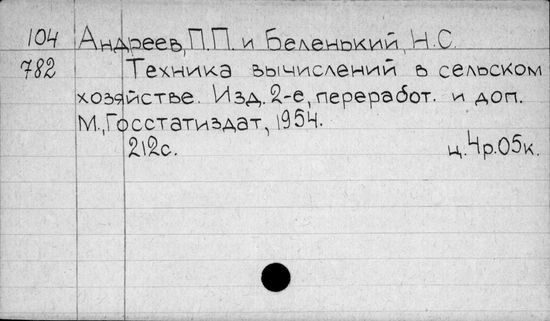 104 Андреев, П.П. и Беленький, Н.С.
782 Техника вычислений в сельском
хозяйстве. Изд. 2-е, переработ. и доп.
М., Госстатиздат, 1954.
212с. ц. 4р. 05к.